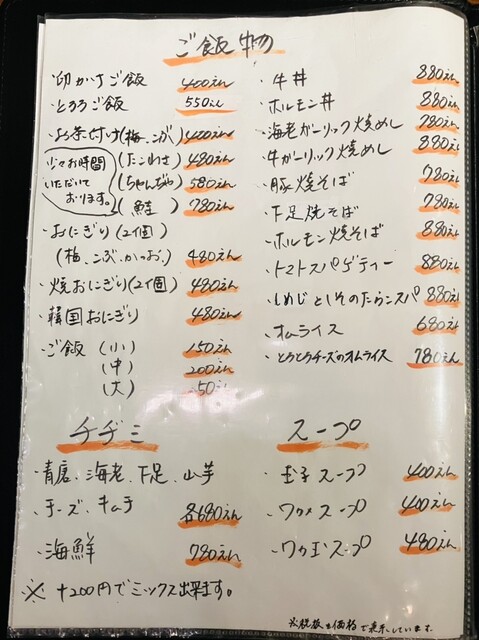 ご飯物
・卵かけご飯 400えん
・とろろご飯 550えん
・お茶付け(梅、こぶ) 400えん
(たこわさ) 480えん
(ちゃんぢゃ) 580えん
(鮭) 780えん
少々お時間
いただいて
おります。
・おにぎり(2個)
(梅、こぶ、かつお) 480えん
・焼おにぎり(2個) 480えん
・韓国おにぎり 480えん
・ご飯 (小) 150えん
(中) 200えん
(大) 50えん
・牛丼 880えん
・ホルモン丼 880えん
・海老ガーリック焼めし 780えん
・牛ガーリック焼めし 880えん
・豚焼そば 780えん
・下足焼そば 780えん
・ホルモン焼そば 880えん
・トマトスパゲティー 880えん
・しめじとしそのたらこスパ 880えん
・オムライス 680えん
・とろとろチーズのオムライス 780えん
チヂミ
・青唐、海老、下足、山芋
・チーズ、キムチ 各680えん
・海鮮 780えん
※ +200円でミックス出来ます。
スープ
・玉子スープ 400えん
・ワカメスープ 400えん
・ワカ玉スープ 480えん
※税抜き価格で表示しています。